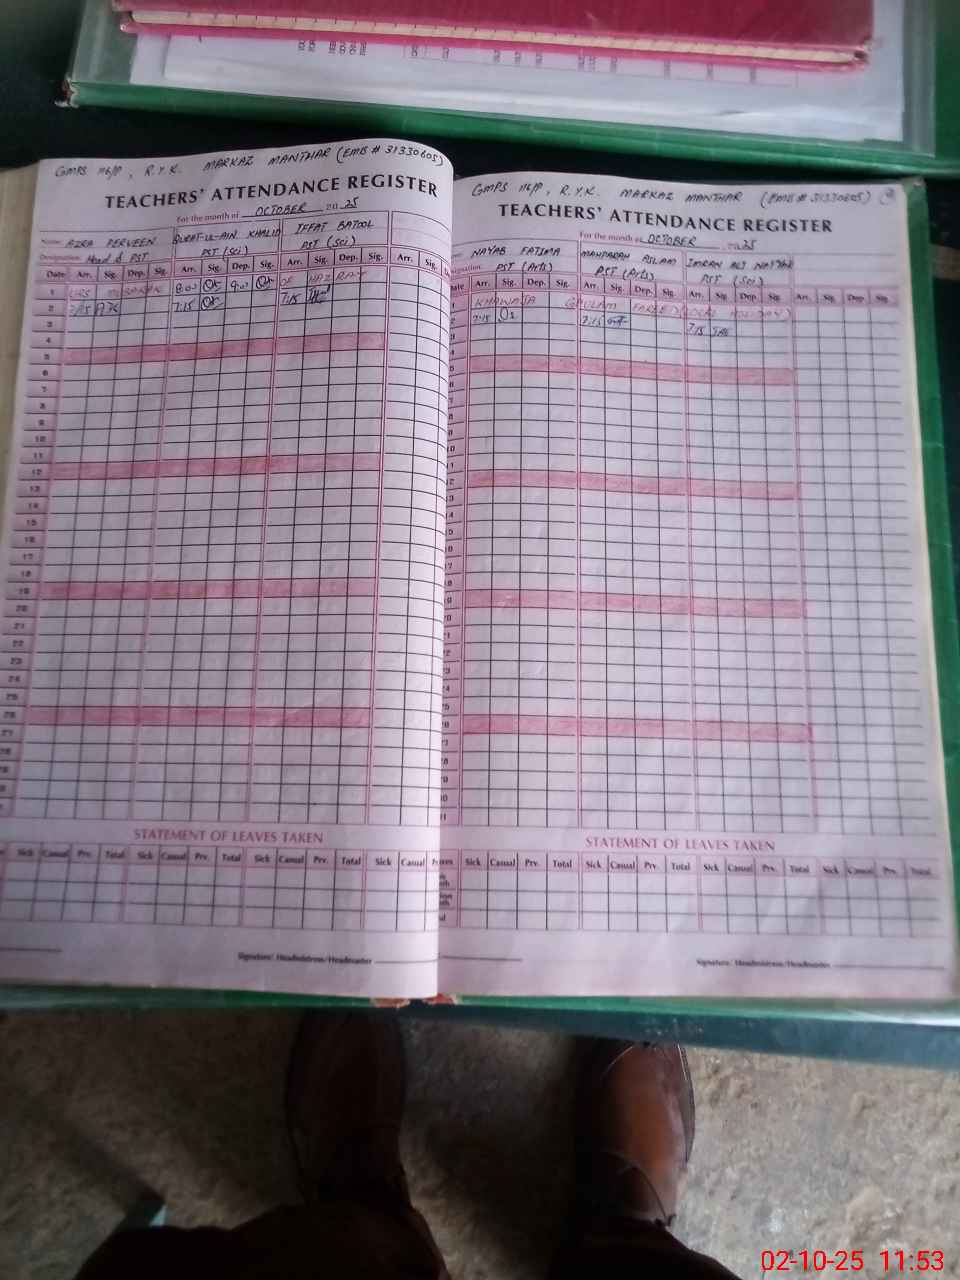 GMPS 116/P, R.Y.K. MARKAZ MANTHAR (EMIS # 31330605)
TEACHERS' ATTENDANCE REGISTER
For the month of OCTOBER 2025
Name: AZRA PERVEEN QURAT-UL-AIN KHALID IFFAT BATOOL
Designation: Head & PST PST (Sci) PST (Sci)
Date Arr. Sig. Dep. Sig. Arr. Sig. Dep. Sig. Arr. Sig. Dep. Sig. Arr. Sig.
1 URS MUBARAK 8:00 9:00 OF
2 7:15 7:15 7:15
4
5
6
7
8
9
10
11
12
13
14
15
16
17
18
19
20
21
22
23
24
25
26
27
STATEMENT OF LEAVES TAKEN
Sick Casual Prv. Total Sick Casual Prv. Total Sick Casual Prv. Total Sick Casual
Signature: Headmistress/Headmaster
GMPS 116/P, R.Y.K. MARKAZ MANTHAR (EMIS # 31330605)
TEACHERS' ATTENDANCE REGISTER
For the month of OCTOBER 2025
NAYAB FATIMA MAHPARAH ASLAM IMRAN ALI
PST (Arts) PST (Arts) PST (Sci)
Arr. Sig. Dep. Sig. Arr. Sig. Dep. Sig. Arr. Sig. Dep. Sig. Arr. Sig. Dep. Sig.
KHAWAJA GHULAM FAREED (LOCAL HOLIDAY)
7:15 7:15 7:15
STATEMENT OF LEAVES TAKEN
Sick Casual Prv. Total Sick Casual Prv. Total Sick Casual Prv. Total Sick Casual Prv. Total
Signature: Headmistress/Headmaster
02-10-25 11:53